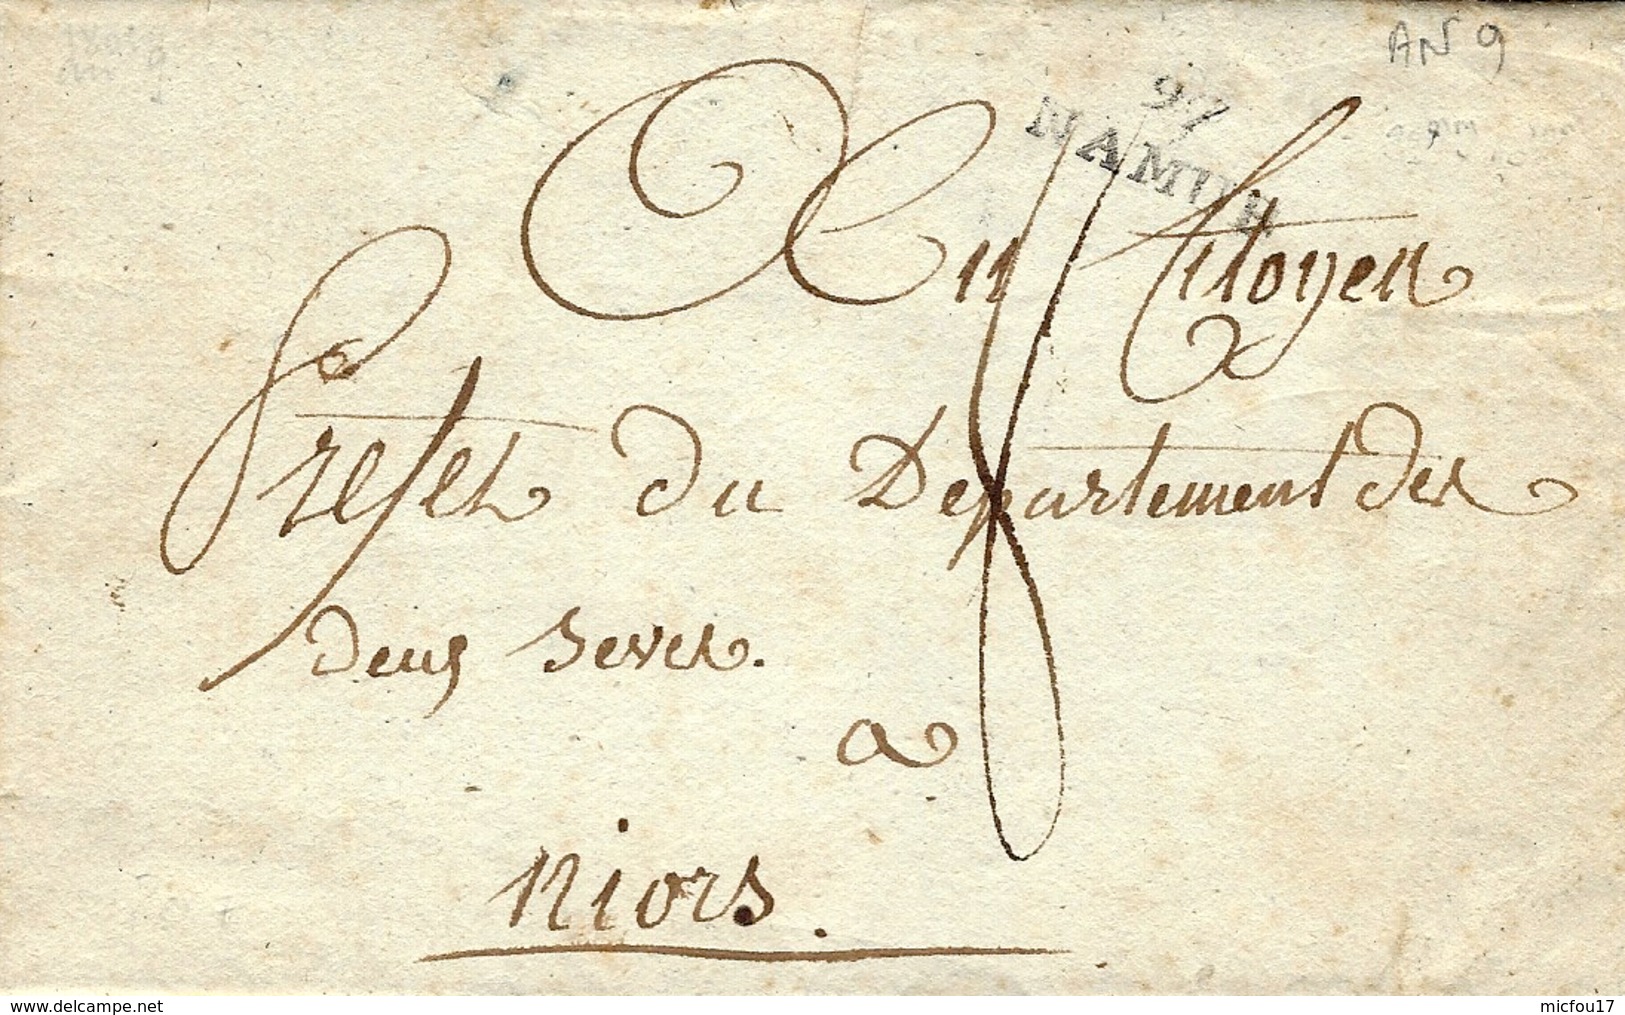 AN 9
an 9
97
NAMUR
Au Citoyen
Prefet du Departement des
deux Sevres.
a
Niors.
www.delcampe.net
micfou17